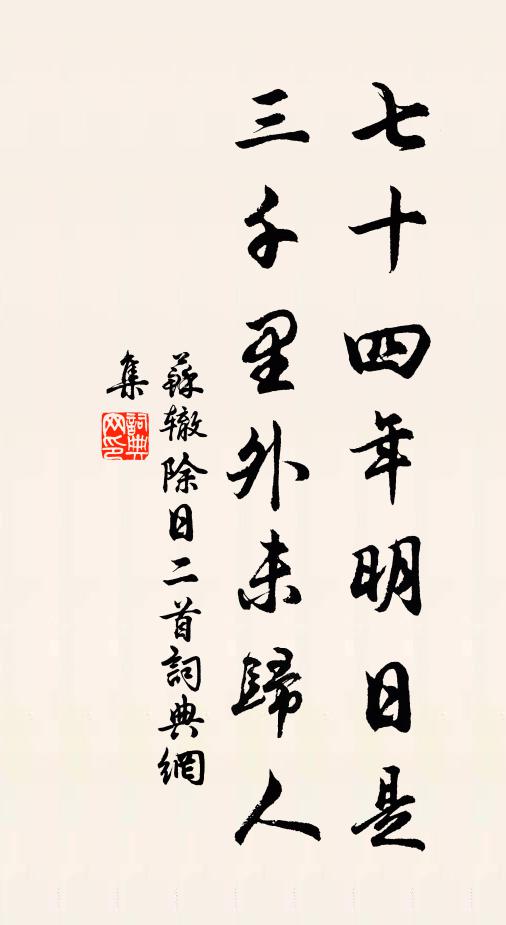 七十四年明日是
三千里外未歸人
蘇辙除日二首詞典網
集
詞典网印